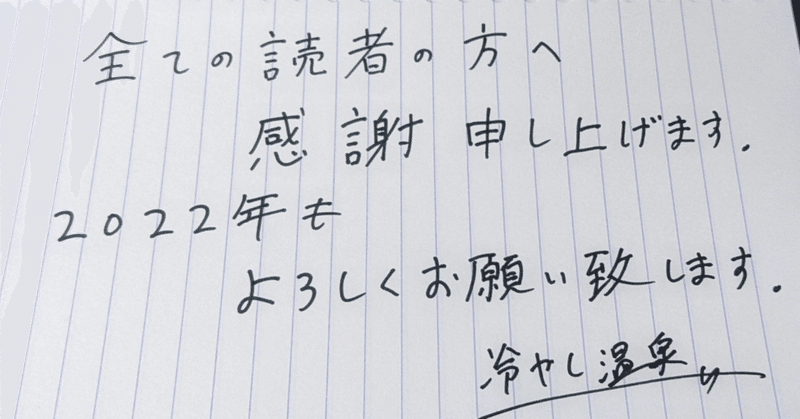 全ての読者の方へ
感謝申し上げます.
2022年も
よろしくお願い致します.
冷やし温泉